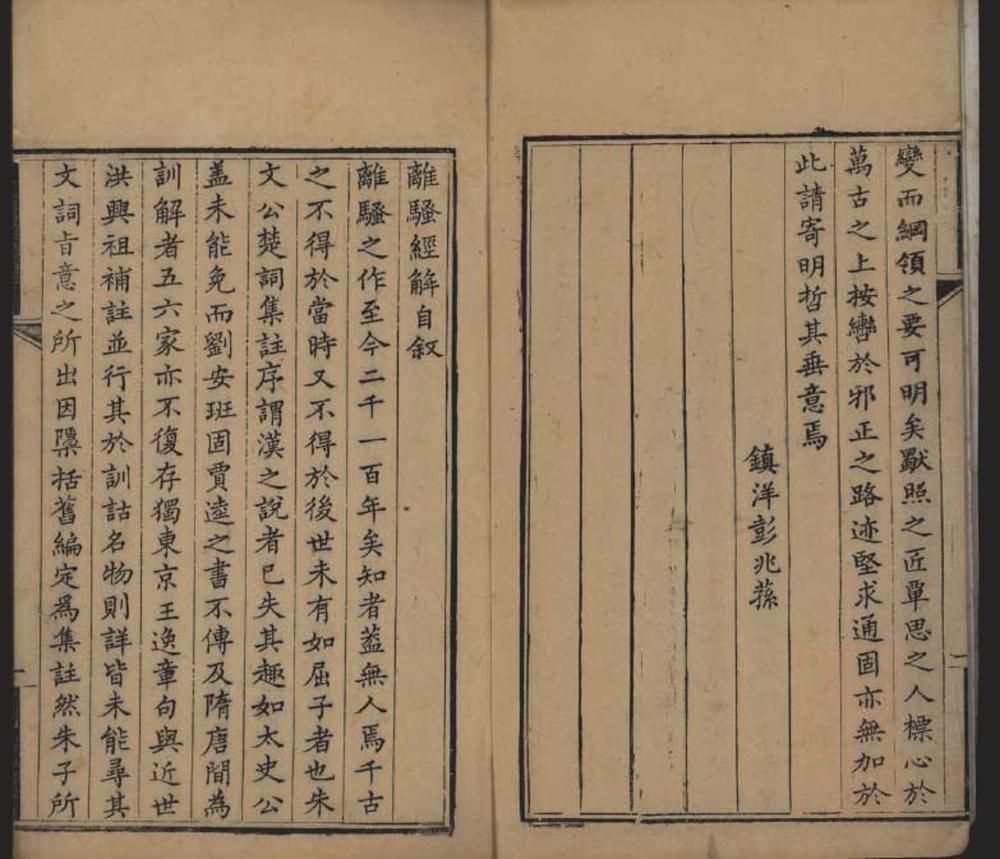 變而綱領之要可明矣歠照之匠單思之人標心於
萬古之上按轡於邪正之路迹堅求通固亦無加於
此請寄明哲其垂意焉
鎮洋彭兆蓀
離騷經解自叙
離騷之作至今二千一百年矣知者葢無人焉千古
之不得於當時又不得於後世未有如屈子者也朱
文公楚詞集註序謂漢之說者已失其趣如太史公
盖未能免而劉安班固賈逵之書不傳及隋唐間為
訓解者五六家亦不復存獨東京王逸章句與近世
洪興祖補註並行其於訓詁名物則詳皆未能尋其
文詞㫖意之所出因檃括舊編定為集註然朱子所